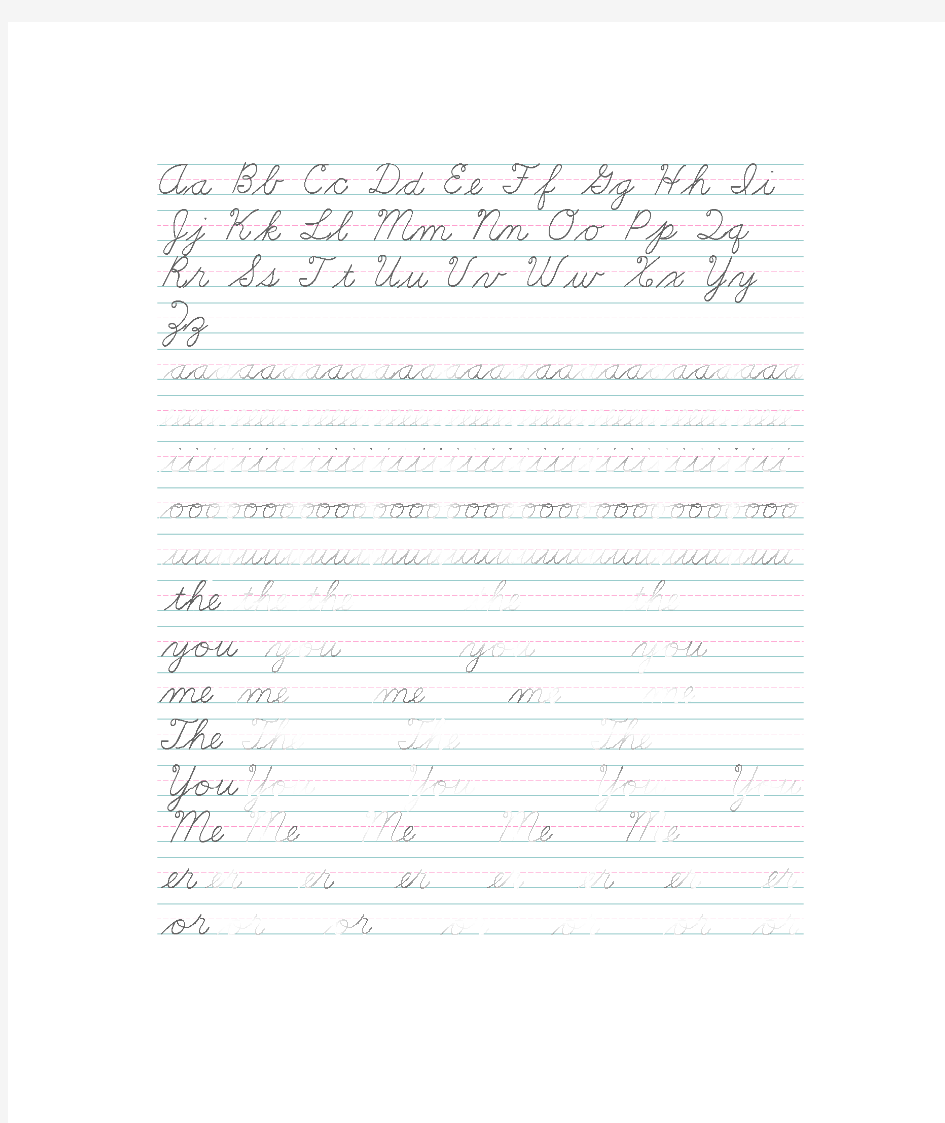 Aa Bb Cc Dd Ee Ff Gg Hh Ii
Jj Kk Ll Mm Nn Oo Pp Qq
Rr Ss Tt Uu Vv Ww Xx Yy
Zz
aaa aaa aaa aaa aaa aaa aaa aaa aaa
iii iii iii iii iii iii iii iii iii
ooo ooo ooo ooo ooo ooo ooo ooo ooo
uuu uuu uuu uuu uuu uuu uuu uuu uuu
the the the the the
you you you you
me me me me me
The The The The
You You You You You
Me Me Me Me Me
er er er er er er er er
or or or or or or or